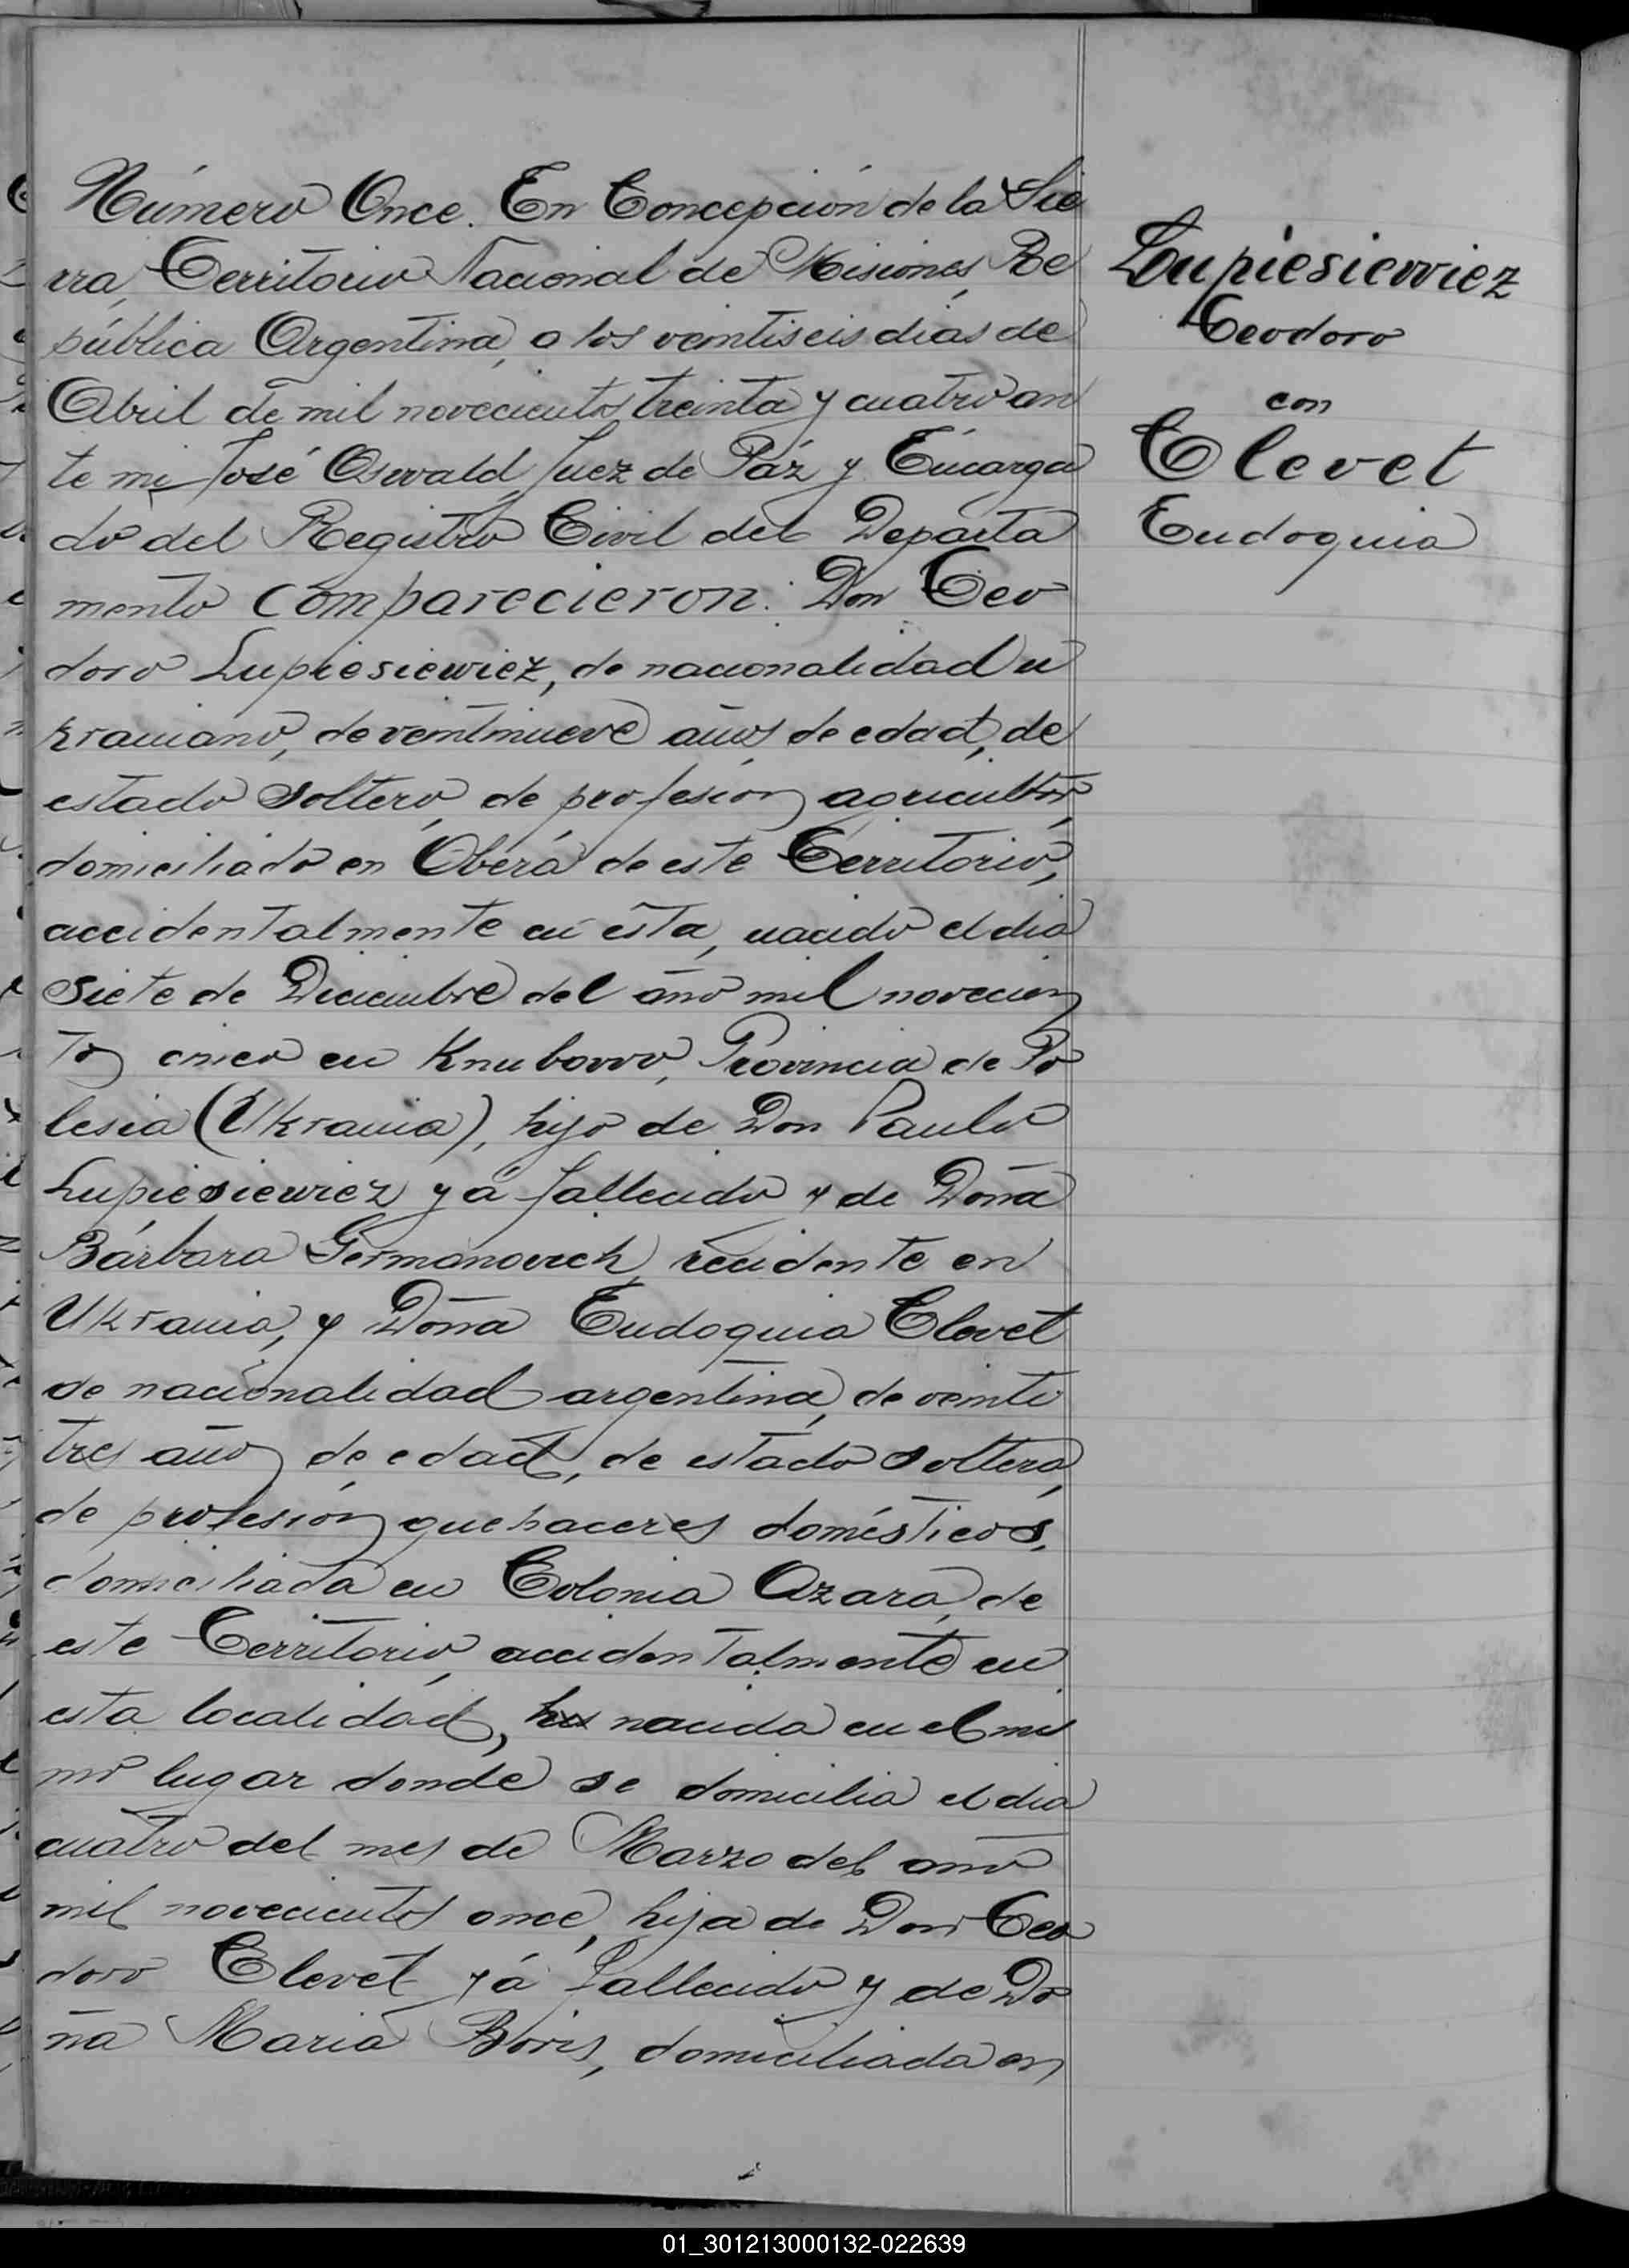 Número Once. En Concepción de la Sie
rra, Territorio Nacional de Misiones, Re
pública Argentina, a los veintiseis dias de
Abril de mil novecientos treinta y cuatro an
te mi José Oswald, Juez de Páz y Encarga
do del Registro Civil del Departa
mento comparecieron: Don Teo
doro Lupiesiewiez, de nacionalidad u
kraniano, de veintinueve años de edad, de
estado soltero, de profesión agricultor,
domiciliado en Oberá de este Territorio,
accidentalmente en ésta, nacido el dia
siete de Diciembre del año mil novecien
tos cinco en Knubowo, Provincia de Po
lesia (Ukrania), hijo de Don Paulo
Lupiesiewiez yá fallecido y de Doña
Bárbara Germanovich, recidente en
Ukrania, y Doña Eudoquia Clevet
de nacionalidad argentina, de veinti
tres años de edad, de estado soltera,
de profesión quehaceres domésticos,
domiciliada en Colonia Azara, de
este Territorio, accidentalmente en
esta localidad, nacida en el mis
mo lugar donde se domicilia el dia
cuatro del mes de Marzo del año
mil novecientos once, hija de Don Teo
doro Clevet yá fallecido y de Do
ña Maria Boris, domiciliada en
Lupiesiewiez
Teodoro
con
Clevet
Eudoquia
01_301213000132-022639